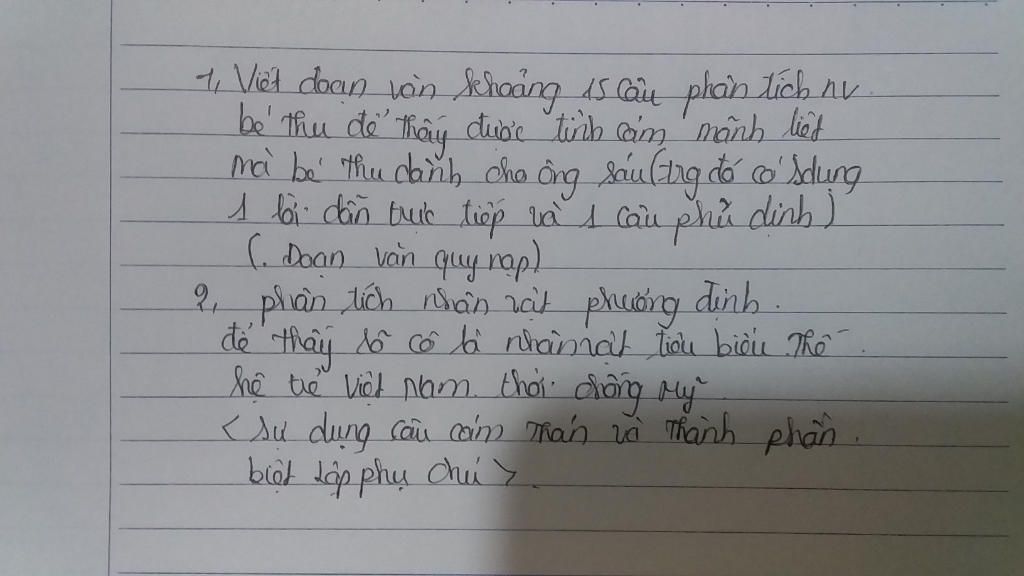 1, Viết đoạn văn khoảng 15 câu phân tích nv
bé thu để thấy được tình cảm mãnh liệt
mà bé thu dành cho ông sáu (trg đó có sdụng
1 lời dẫn trực tiếp và 1 câu phủ định)
(. Đoạn văn quy nạp)
2, phân tích nhân vật phương định.
để thấy cô là nhân vật tiêu biểu thế
hệ trẻ việt nam thời chống mỹ
< sử dụng câu cảm thán và thành phần.
biệt lập phụ chú >.